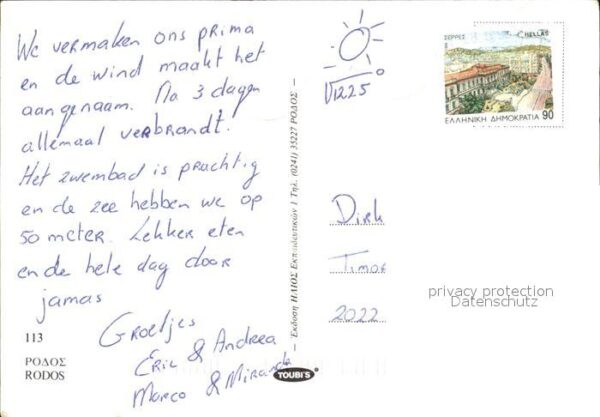 We vermaken ons prima
en de wind maakt het
aangenaam. Na 3 dagen
allemaal verbrandt.
Het zwembad is prachtig
en de zee hebben we op
50 meter. Lekker eten
en de hele dag door
jamas
Groetjes
Eric & Andrea
Marco & Miranda
113
ΡΟΔΟΣ
RODOS
– Έκδοση ΗΛΙΟΣ Εκπαιδευτικών 1 Τηλ. (0241) 35227 ΡΟΔΟΣ –
TOUBI'S
ΣΕΡΡΕΣ
HELLAS
ΕΛΛΗΝΙΚΗ ΔΗΜΟΚΡΑΤΙΑ 90
Dirk
Timor
2022
privacy protection
Datenschutz